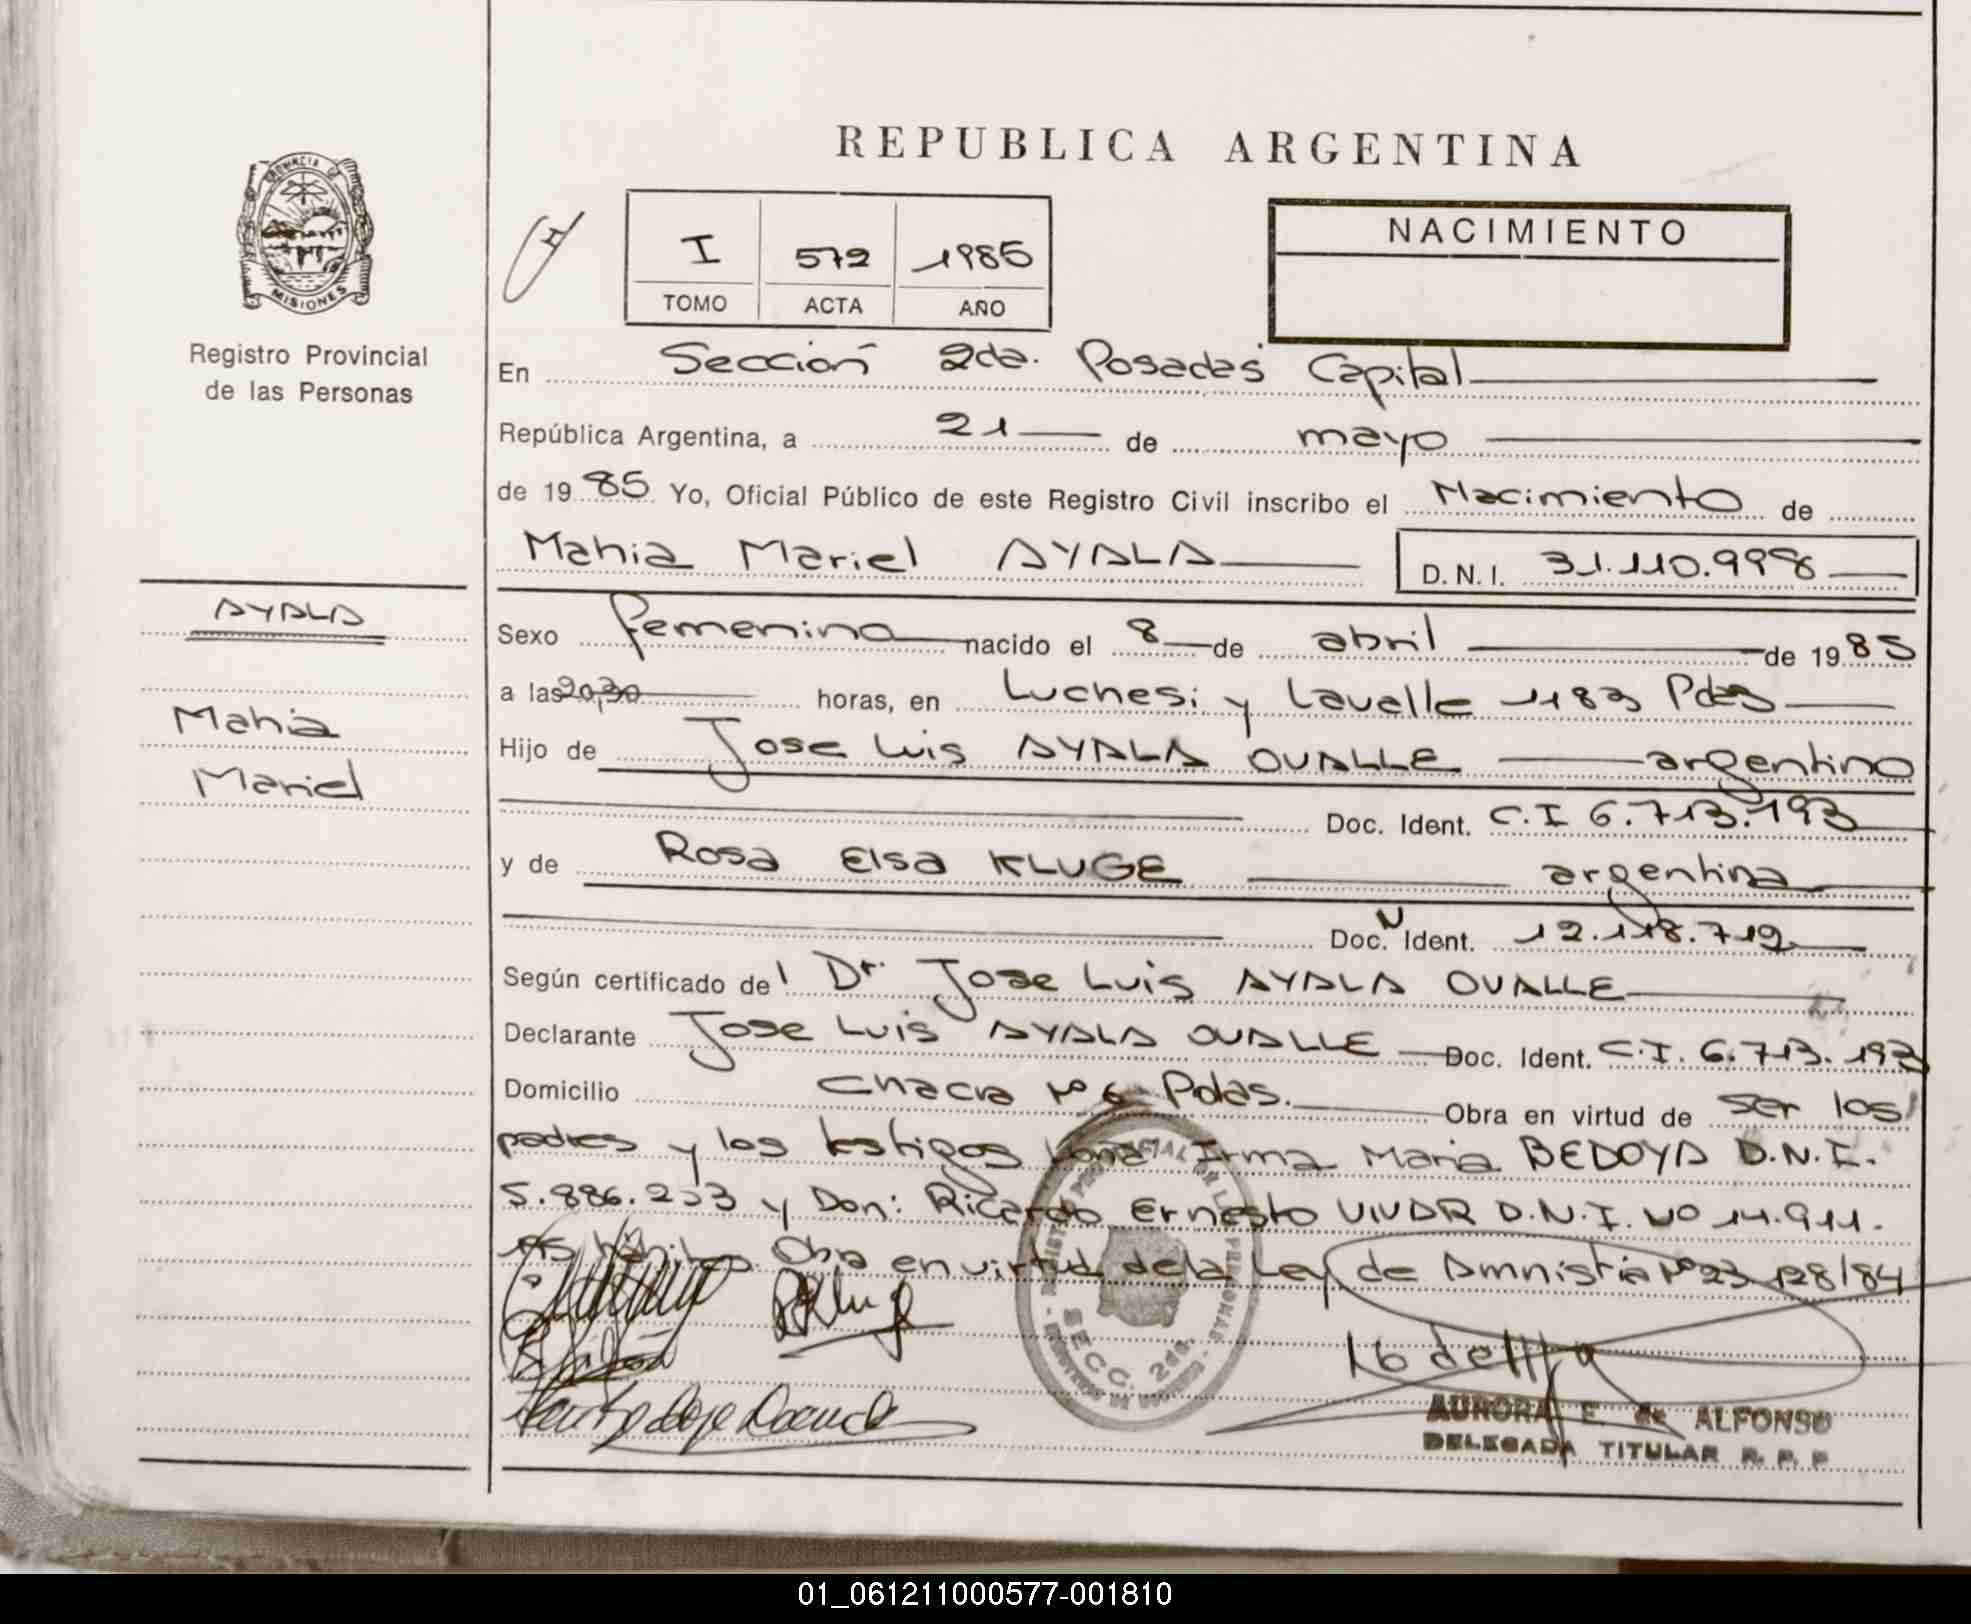 REPUBLICA ARGENTINA
PROVINCIA DE
MISIONES
Registro Provincial
de las Personas
I 572 1985
TOMO ACTA AÑO
NACIMIENTO
En Sección 2da. Posadas Capital
República Argentina, a 21 de mayo
de 1985 Yo, Oficial Público de este Registro Civil inscribo el Nacimiento de
Mahia Mariel AYALA D.N.I. 31.110.998
AYALA
Mahia
Mariel
Sexo femenino nacido el 8 de abril de 1985
a las 20,30 horas, en Luchesi y Lavalle 1183 Pdas
Hijo de Jose Luis AYALA OVALLE argentino
Doc. Ident. C.I 6.713.193
y de Rosa Elsa KLUGE argentina
Doc. N Ident. 12.118.712
Según certificado del Dr. Jose Luis AYALA OVALLE
Declarante Jose Luis AYALA OVALLE Doc. Ident. C.I. 6.713.193
Domicilio Chacra Nº 6 Pdas. Obra en virtud de ser los
padres y los testigos Irma Maria BEDOYA D.N.I.
5.886.253 y Don: Ricardo Ernesto VIVAR D.N.I. Nº 14.911.
Obra en virtud de la Ley de Amnistia Nº 23.128/84
SECC. 2da.
AURORA E. de ALFONSO
DELEGADA TITULAR R. P. P
01_061211000577-001810